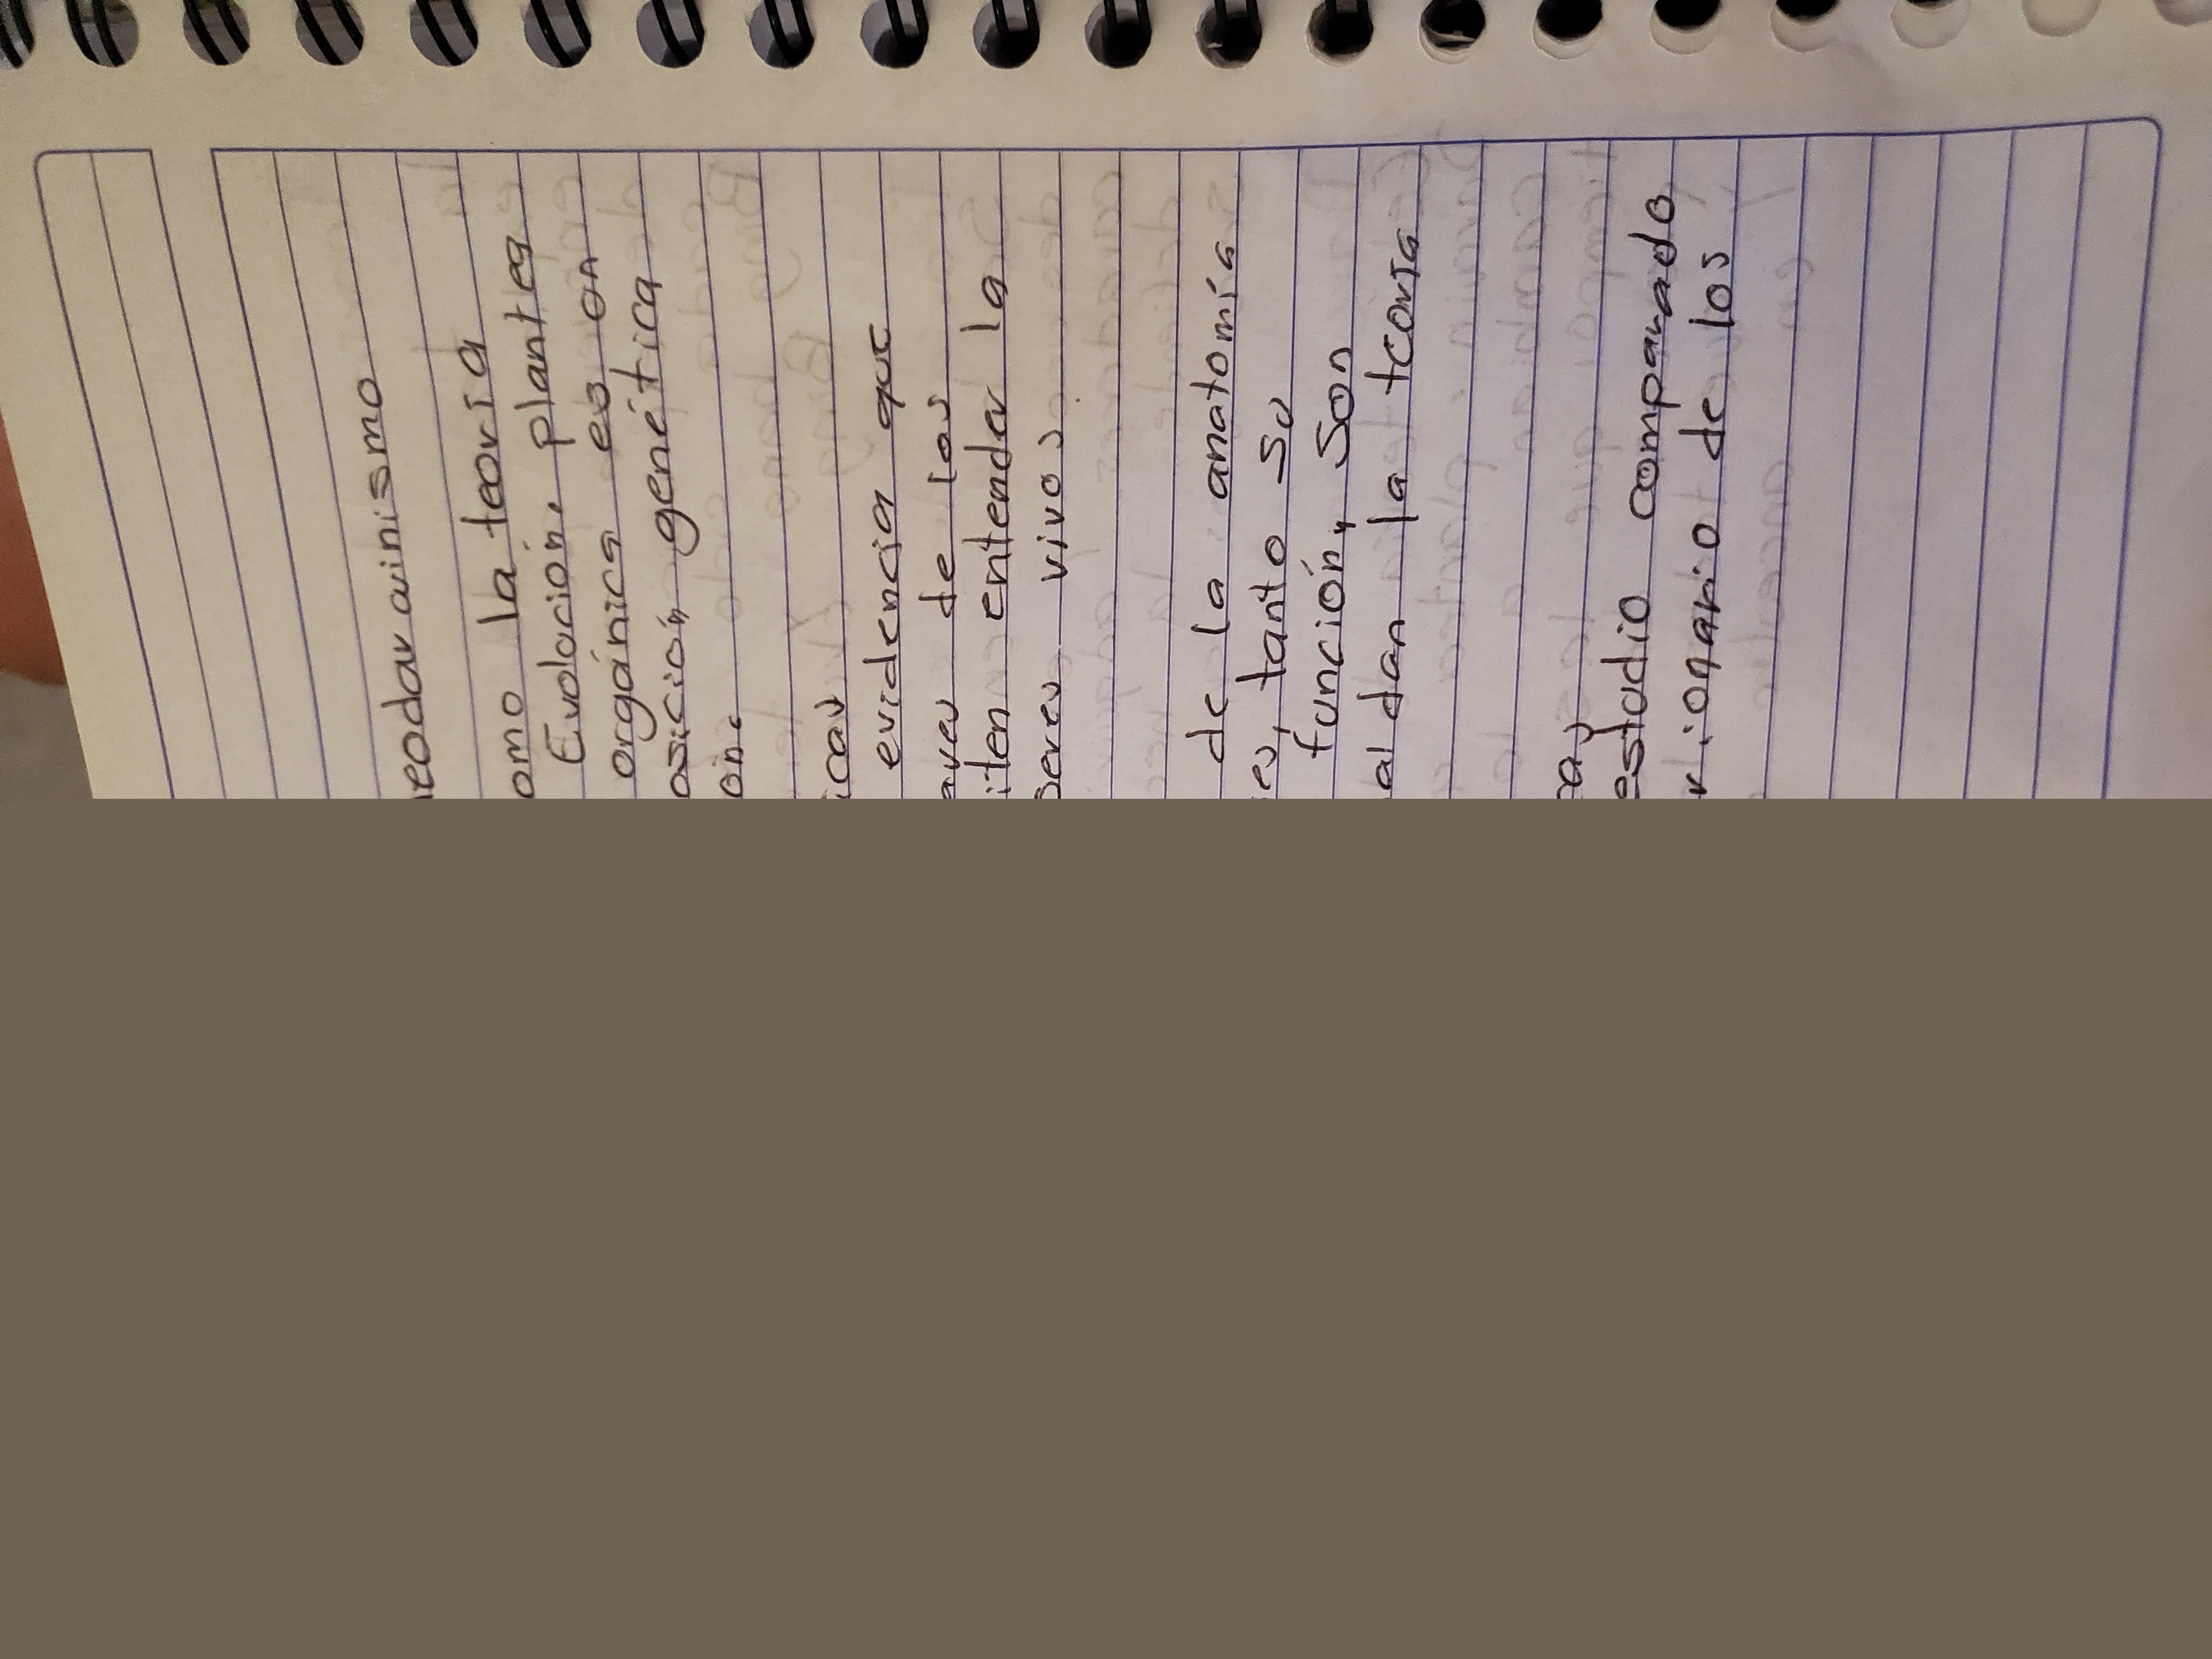 neodarwinismo
omo la teoría
Evolución, plantea
orgánica es un
osición genética
ón.
icas
evidencia que
aves de las
iten entender la
seres vivos
de la anatomía
es, tanto su
función, son
al dan la teoría
as
estudio comparado
rionario de los